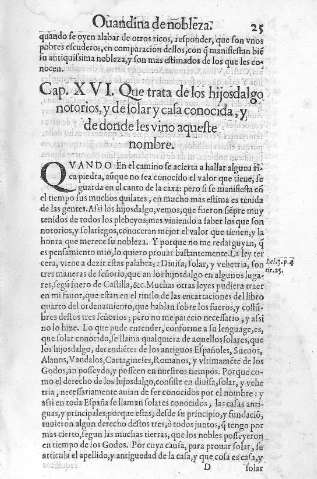 Ouandina de nobleza. 25
quando se oyen alabar de otros ricos, responder, que son vnos
pobres escuderos, en comparacion dellos, con q̃ manifiestan biẽ
su antiquissima nobleza, y son mas estimados de los que les co-
nocen.
Cap. XVI. Que trata de los hijosdalgo
notorios, y de solar y casa conocida, y
de donde les vino aqueste
nombre.
QVANDO En el camino se acierta a hallar alguna ri-
ca piedra, aũque no sea conocido el valor que tiene, se
guarda en el canto de la cara: pero si se manifiesta en
el tiempo sus muchos quilates, en mucho mas estima es tenida
de las gentes. Assi los hijosdalgo, vemos, que fueron sẽpre muy
tenidos de todos los plebeyos, mas viniendo a saber los que son
notorios, y solariegos, conoceran mejor el valor que tienen, y la
honra que merece su nobleza. Y porque no me redarguyan, q̃
es pensamiento mio, lo quiero prouar bastantemente. La ley ter
cera, viene a dezir estas palabras: Diuisa, solar, y vehetria, son
tres maneras de señorio, que an los hijosdalgo en algunos luga-
res, segũ fuero de Castilla, &c. Muchas otras leyes pudiera traer
en mi fauor, que estan en el titulo de las encartaciones del libro
quarto del ordenamiento, que hablan sobre los fueros, y costũ-
bres destos tres señorios; pero no me parecio necessario, y assi
no lo hize. Lo que pude entender, conforme a su lenguage, es,
que solar conocido, se llama qualquiera de aquellos solares, que
los hijosdalgo, decendientes de los antiguos Españoles, Sueuos,
Alanos, Vandalos, Cartagineses, Romanos, y vltimamẽte de los
Godos, an posseydo, y posseen en nuestros tiempos. Porque co-
mo el derecho de los hijosdalgo, consiste en diuisa, solar, y vehe
tria, necessariamente auian de ser conocidos por el nombre: y
assi en toda España se llaman solares conocidos, las casas anti-
guas, y principales, porque estas, desde su principio, y fundaciõ,
tuuieron algun derecho destos tres, o todos juntos, q̃ tengo por
mas cierto, segun las muchas tierras, que los nobles posseyeron
en tiempo de los Godos. Por cuya causa, para prouar solar, se
articula el apellido, y antiguedad de la casa, y que cosa es casa, y
D solar